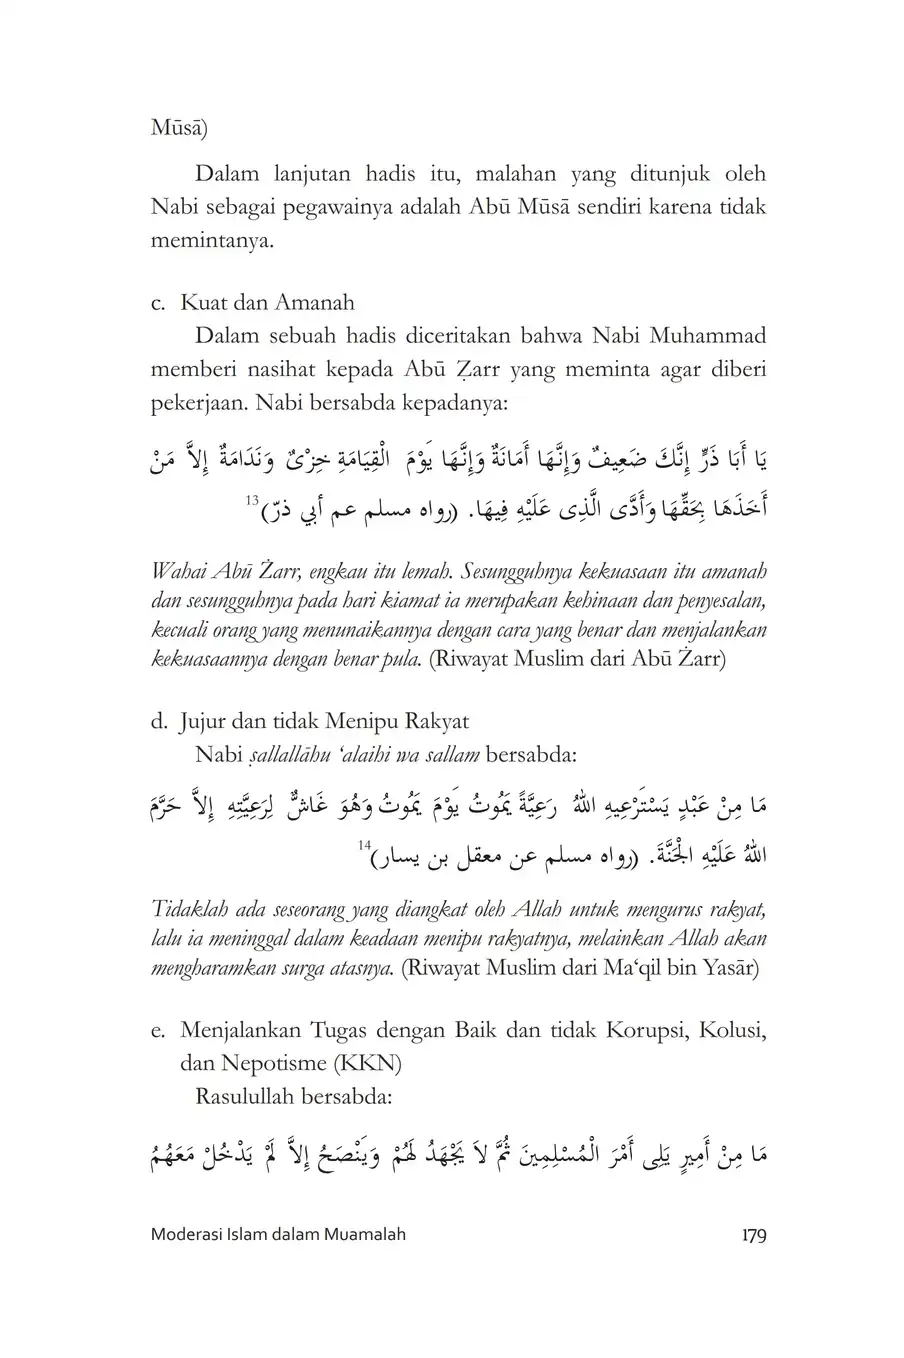 Mūsā)
Dalam lanjutan hadis itu, malahan yang ditunjuk oleh
Nabi sebagai pegawainya adalah Abū Mūsā sendiri karena tidak
memintanya.
c. Kuat dan Amanah
Dalam sebuah hadis diceritakan bahwa Nabi Muhammad
memberi nasihat kepada Abū Ẓarr yang meminta agar diberi
pekerjaan. Nabi bersabda kepadanya:
يَا أَبَا ذَرٍّ إِنَّكَ ضَعِيفٌ وَإِنَّهَا أَمَانَةٌ وَإِنَّهَا يَوْمَ الْقِيَامَةِ خِزْىٌ وَنَدَامَةٌ إِلاَّ مَنْ
أَخَذَهَا بِحَقِّهَا وَأَدَّى الَّذِى عَلَيْهِ فِيهَا. (رواه مسلم عم أبي ذرّ)13
Wahai Abū Żarr, engkau itu lemah. Sesungguhnya kekuasaan itu amanah
dan sesungguhnya pada hari kiamat ia merupakan kehinaan dan penyesalan,
kecuali orang yang menunaikannya dengan cara yang benar dan menjalankan
kekuasaannya dengan benar pula. (Riwayat Muslim dari Abū Żarr)
d. Jujur dan tidak Menipu Rakyat
Nabi ṣallallāhu ‘alaihi wa sallam bersabda:
مَا مِنْ عَبْدٍ يَسْتَرْعِيهِ اللهُ رَعِيَّةً يَمُوتُ يَوْمَ يَمُوتُ وَهُوَ غَاشٌّ لِرَعِيَّتِهِ إِلاَّ حَرَّمَ
اللهُ عَلَيْهِ الْجَنَّةَ. (رواه مسلم عن معقل بن يسار)14
Tidaklah ada seseorang yang diangkat oleh Allah untuk mengurus rakyat,
lalu ia meninggal dalam keadaan menipu rakyatnya, melainkan Allah akan
mengharamkan surga atasnya. (Riwayat Muslim dari Ma‘qil bin Yasār)
e. Menjalankan Tugas dengan Baik dan tidak Korupsi, Kolusi,
dan Nepotisme (KKN)
Rasulullah bersabda:
مَا مِنْ أَمِيرٍ يَلِى أَمْرَ الْمُسْلِمِينَ ثُمَّ لاَ يَجْهَدُ لَهُمْ وَيَنْصَحُ إِلاَّ لَمْ يَدْخُلْ مَعَهُمُ
Moderasi Islam dalam Muamalah 179